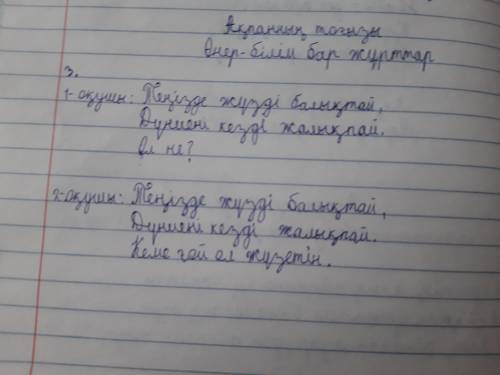 Ақпанның тоғызы
Өнер-білім бар жұрттар
3.
1-оқушы: Теңізде жүзді балықтай,
Дүниені кезді жалықпай.
Ол не?
2-оқушы: Теңізде жүзді балықтай,
Дүниені кезді жалықпай.
Кеме ғой ол жүзетін.